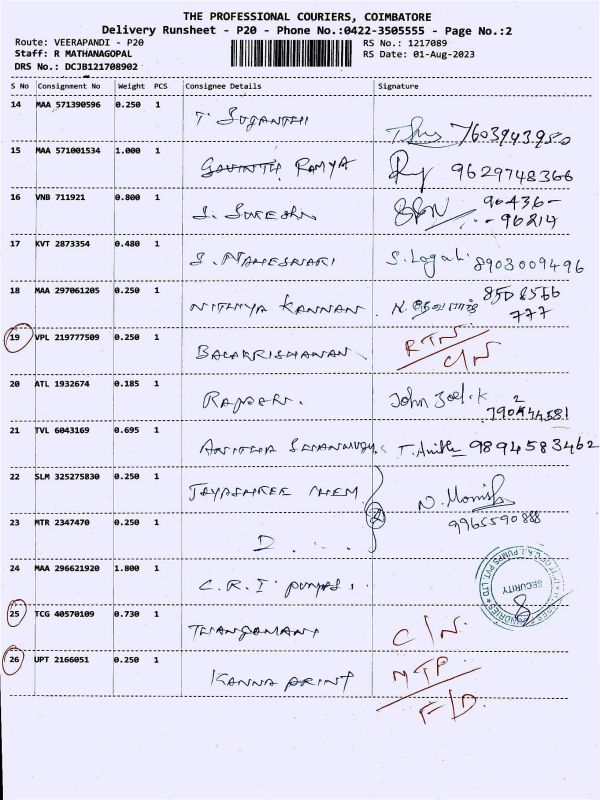 THE PROFESSIONAL COURIERS, COIMBATORE
Delivery Runsheet - P20 - Phone No.:0422-3505555 - Page No.:2
Route: VEERAPANDI - P20 RS No.: 1217089
Staff: R MATHANAGOPAL RS Date: 01-Aug-2023
DRS No.: DCJB121708902
S No Consignment No Weight PCS Consignee Details Signature
14 MAA 571390596 0.250 1
T. SUGANTHI 7603943950
15 MAA 571001534 1.000 1
GOVINTH RAMYA 9629748366
16 VNB 711921 0.800 1
S. SURESH 90436-
--96214
17 KVT 2873354 0.480 1
S. MAHESWARI S. Logah 8903009496
18 MAA 297061205 0.250 1
NITHYA KANNAN 8508566
777
19 VPL 219777509 0.250 1
BALAKRISHANAN RTN
C/N
20 ATL 1932674 0.185 1
RAJESH. John
21 TVL 6043169 0.695 1
ANITHA T. Anitha 9894583462
22 SLM 325275830 0.250 1
JAYASHREE CHEM
23 MTR 2347470 0.250 1
D . . . . 9965590888
24 MAA 296621920 1.800 1
C.R.I. PUMPS SECURITY
25 TCG 40570109 0.730 1
THANGAMANI C/N.
26 UPT 2166051 0.250 1
KANNA PRINT NTP
F/D.